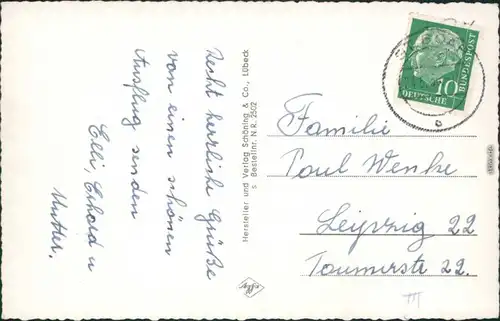 Recht herrliche Grüße
von einen schönen
Ausflug senden
Elli, Erhard u
Mutter.
Hersteller und Verlag Schöning & Co., Lübeck
s. Bestellnr. N.R. 2502
10
DEUTSCHE
BUNDESPOST
Familie
Paul Wenke
Leipzig 22
22.